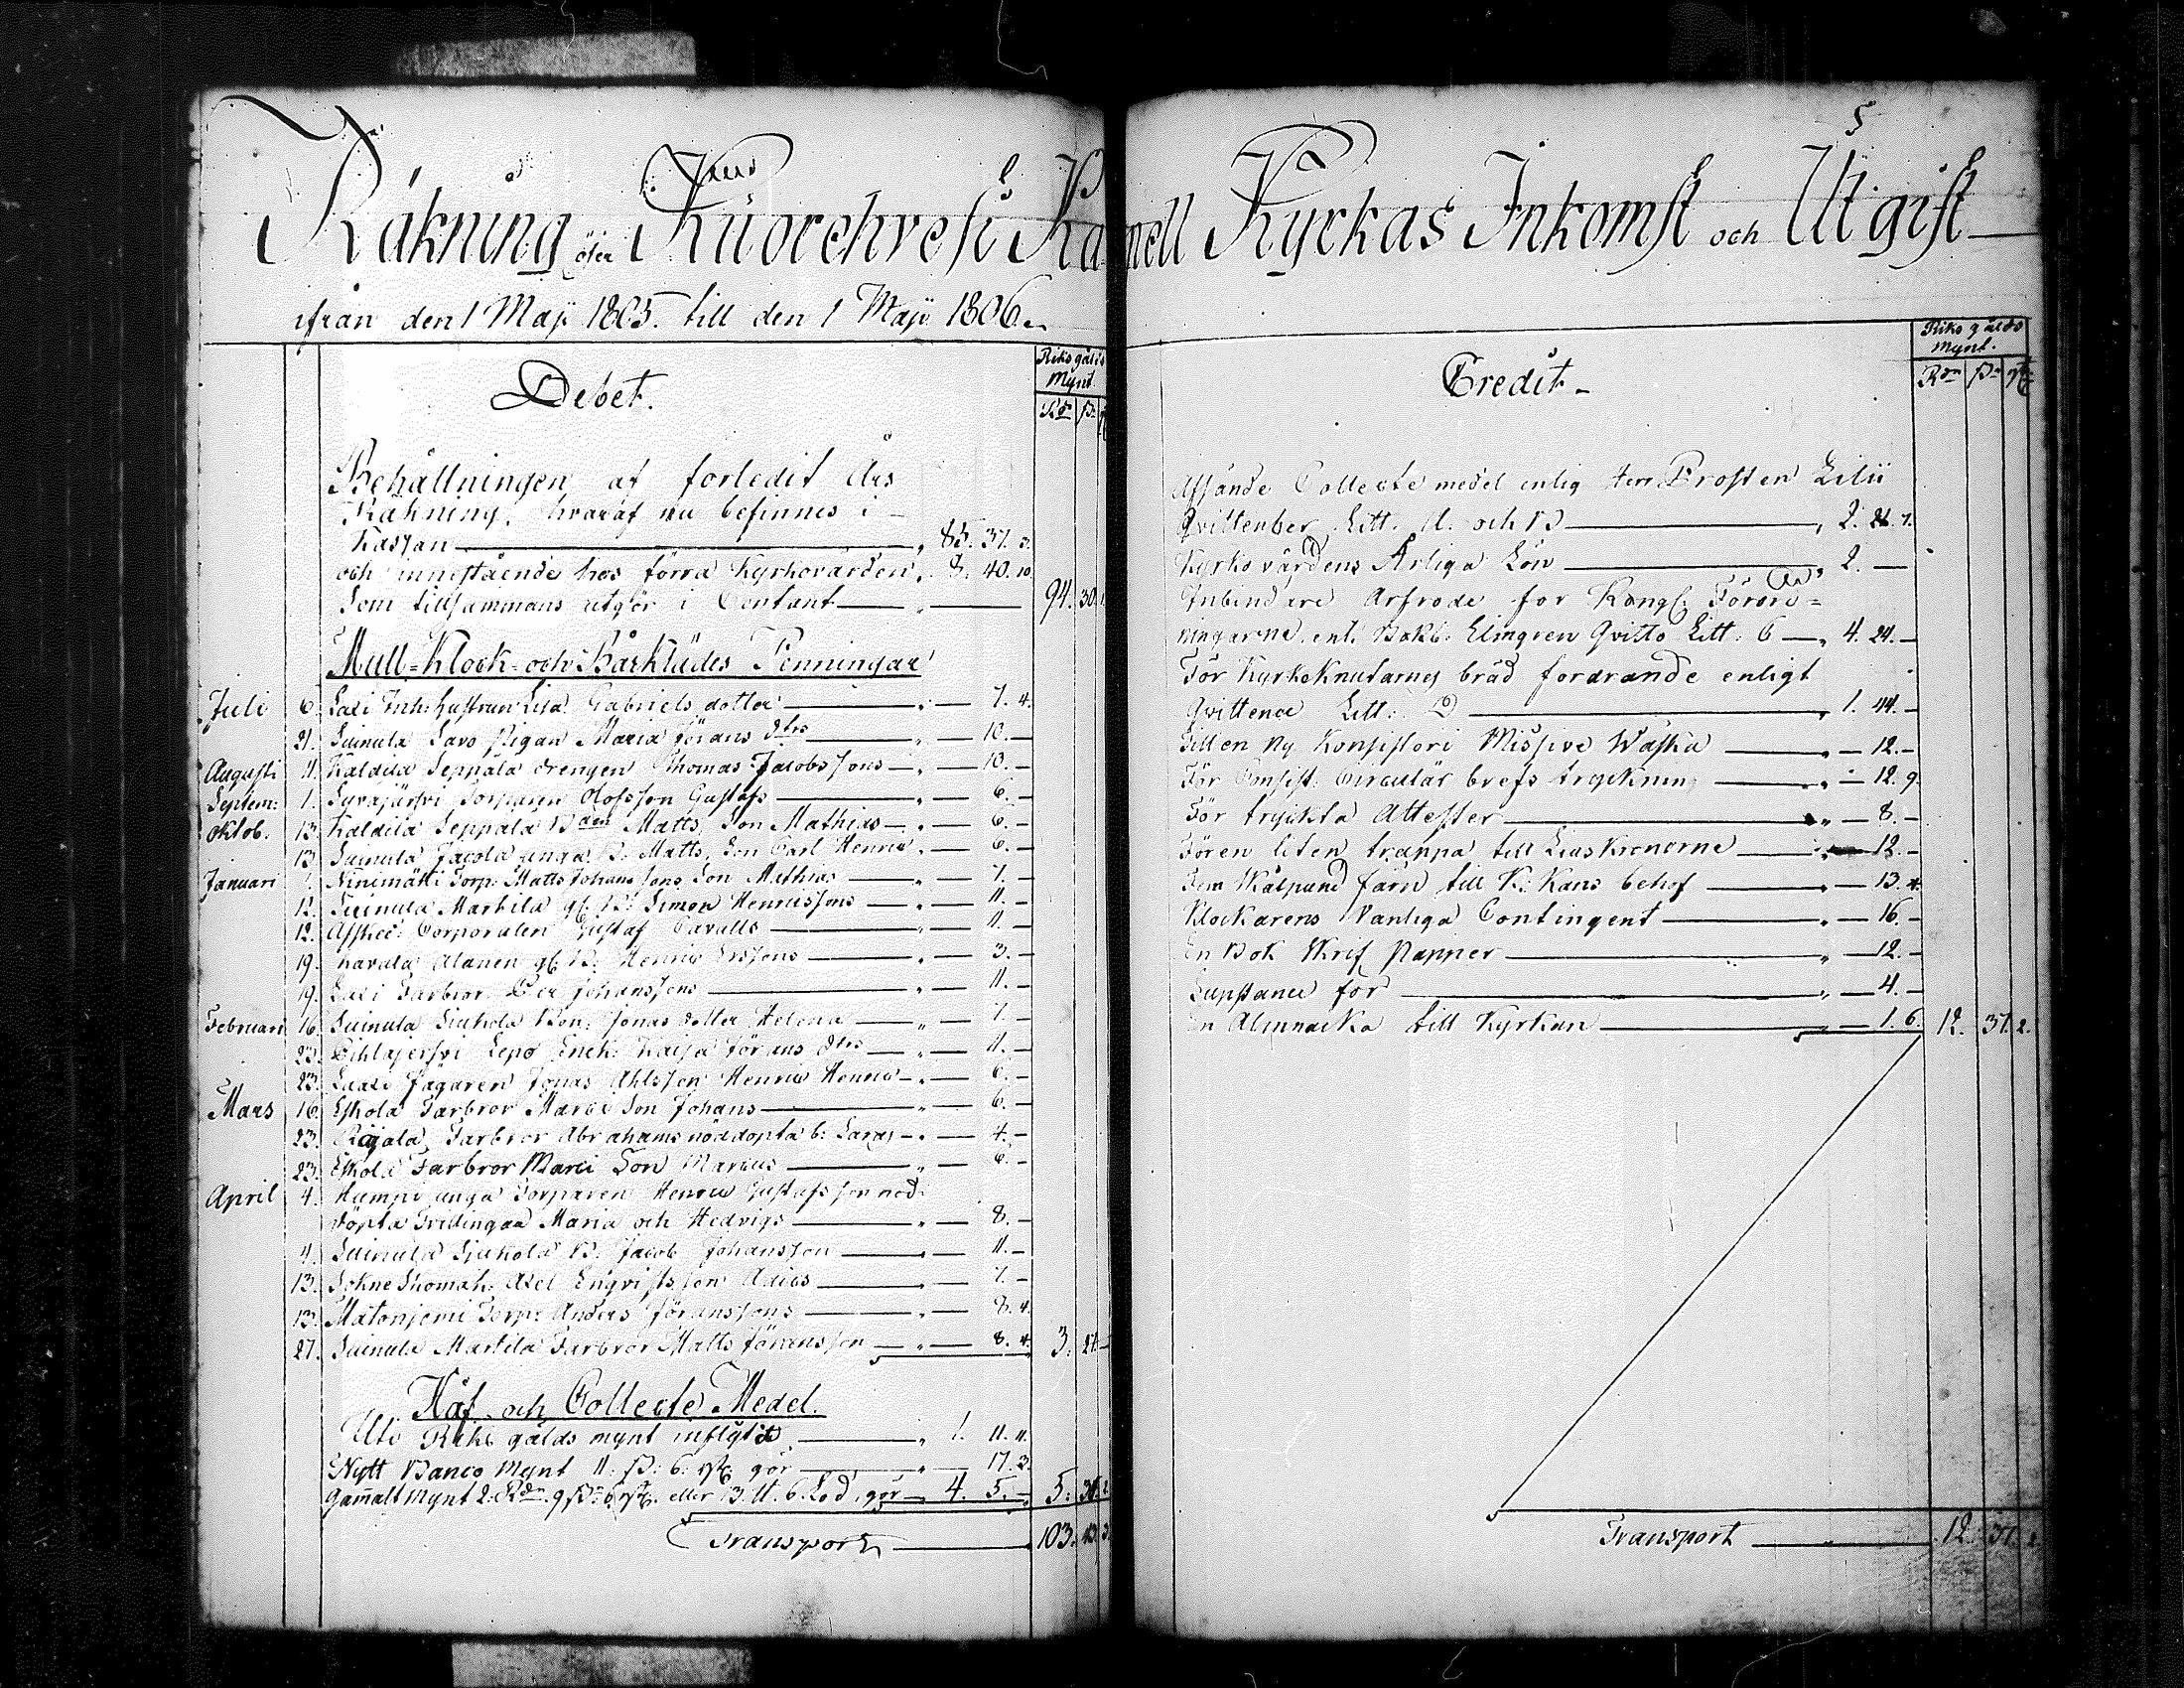 5
Räkning öfver Kuorehvesi Kapell Kyrkas Inkomst och Utgift
ifrån den 1 Maji 1805. till den 1 Maji 1806.
Debet.
Riksgälds
Mynt.
Rdr ß
Behållningen af forledit års
Räkning, hvaraf nu befinnes i
Kassan 85. 37. 3.
och innestående hos förra Kyrkovärden 8. 40. 10.
Som tillsammans utgör i Contant 94. 30.
Mull-Klock- och Bårklädes Penningar
Juli 6. Laxi Inh: hustrun Lisa Gabriels dotter 7. 4.
21. Suinula Lavo pigan Maria Jörans dtrs 10. -
Augusti 11. Kaldila Seppälä drengen Thomas Jacobssons 10. -
Septem: 1. Syväjärfvi Torparen Olofsson Gustafs 6. -
Oktob. 13. Kaldila Seppälä Bden Matts Son Mathias 6. -
13. Suinula Jacola unga B. Matts Son Carl Henric 6. -
Januari 1. Ninimäki Torp: Matts Johanssons Son Mathias 7. -
12. Suinula Martila gl. B: Simon Henricssons 11. -
12. Afsked: Corporalen Gustaf Cavalls 11. -
19. Kavala Alanen gl. B. Henric Erssons 3. -
19. Laxi Farbror Per Johanssons 11. -
Februari 16. Suinula Siukola Bon: Jonas dotter Helena 7. -
23. Pihlajerfvi Lepo Enck: Kaisa Jörans dtrs 11. -
23. Laxi Jägaren Jonas Ahlsson Henric Henric 6. -
Mars 16. Eskola Farbror Marci Son Johans 6. -
23. Rajala Farbror Abrahams nöddöpta b: Laras 4. -
23. Eskola Farbror Marci Son Marcus 6. -
April 4. Humpi unga Torparen Henric Gustafsson nöd-
döpta Trillingar Maria och Hedvigs 8. -
4. Suinula Siukola B. Jacob Johansson 11. -
13. Axel Engvistsson 7. -
13. Matoniemi Torp: Anders Jöranssons 8. 4.
27. Suinula Martila Farbror Matts Jöransson 8. 4. 3. 27. -
Håf- och Collecte Medel.
Uti Riksgälds mynt influtit 1. 11. 11.
Nytt Banco Mynt 11. ß: 6. rst. gör 17. 3.
Gammalt Mynt 2. Rdr 9 ß 6 rst. eller 13. lt. 6. Lod, gör 4. 5. - 5. 34. 2
Transport 103. 43. 3.
Credit
Riksgälds
Mynt.
Rdr ß rst
Afsände Collecte medel enlig Herr Prosten Lilii
Qvittenber Litt. A. och B 2. 26. 7.
Kyrkovärdens Årliga Lön 2. -
Inbindare Arfvode for Kongl: Förord-
ningarne, enl. Bokb: Elmgren Qvitto Litt: C 4. 24. -
För Kyrkoknutarnes bräd fordrande enligt
Qvittence Litt: D 1. 44. -
Till en ny Konsistori Missive Wäska 12. -
För Consist: Circulär brefs tryckning 12. 9.
För tryckta Attester 8. -
För en liten trappa till Ljuskronorne 12. -
Fem Skålpund Järn till K: Kans behof 13. 4.
Klockarens Vanliga Contingent 16. -
En Bok Skrif Papper 12. -
4. -
En Almnacka till Kyrkan 1. 6. 12. 37. 2.
Transport 12. 37. 2